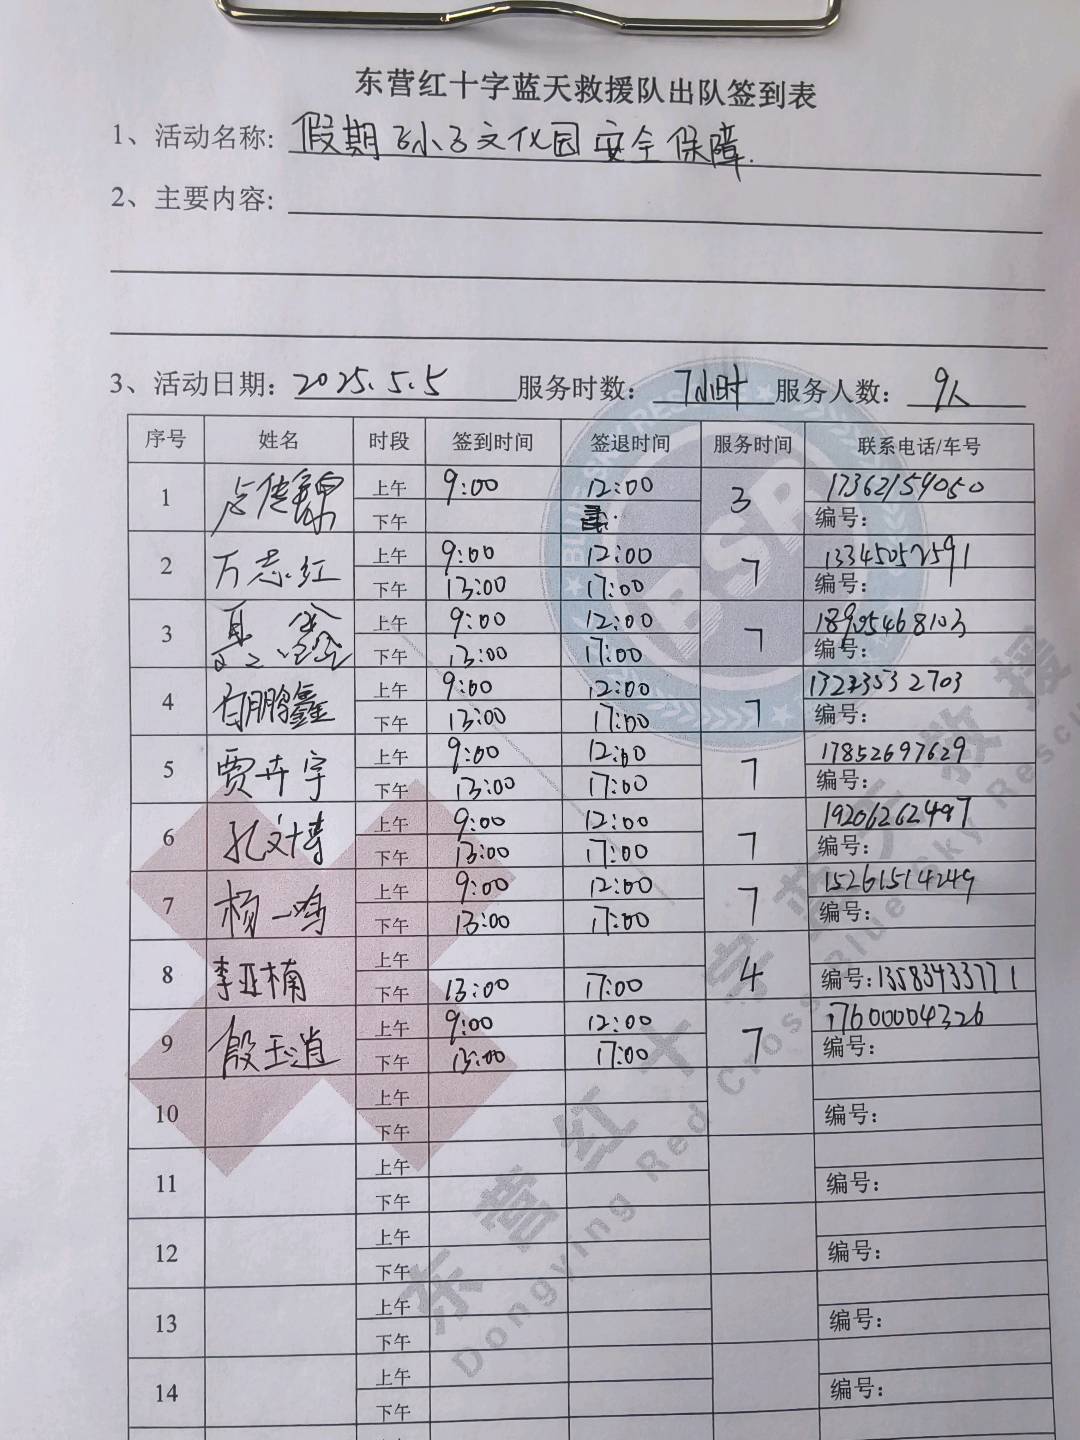 东营红十字蓝天救援队出队签到表
1、活动名称: 假期孙子文化园安全保障.
2、主要内容:
3、活动日期: 2025.5.5 服务时数: 7小时 服务人数: 9人
序号 姓名 时段 签到时间 签退时间 服务时间 联系电话/车号
1 上午 9:00 12:00 3 17362159050
下午 编号:
2 万志红 上午 9:00 12:00 7 13345052591
下午 13:00 17:00 编号:
3 上午 9:00 12:00 7 18905468103
下午 13:00 17:00 编号:
4 鹏鑫 上午 9:00 12:00 7
下午 13:00 17:00 编号:
5 贾卉宇 上午 9:00 12:00 7 17852697629
下午 13:00 17:00 编号:
6 孔文博 上午 9:00 12:00 7 19206262497
下午 13:00 17:00 编号:
7 杨一鸣 上午 9:00 12:00 7 15261514249
下午 13:00 17:00 编号:
8 李亚楠 上午 4
下午 13:00 17:00 编号: 13583433771
9 殷玉道 上午 9:00 12:00 7 17600004326
下午 13:00 17:00 编号:
10 上午
下午 编号:
11 上午
下午 编号:
12 上午
下午 编号:
13 上午
下午 编号:
14 上午
下午 编号:
上午
BLUE SKY RESCUE
BSR
东营红十字蓝天救援
Dongying Red Cross Blue Sky Rescu